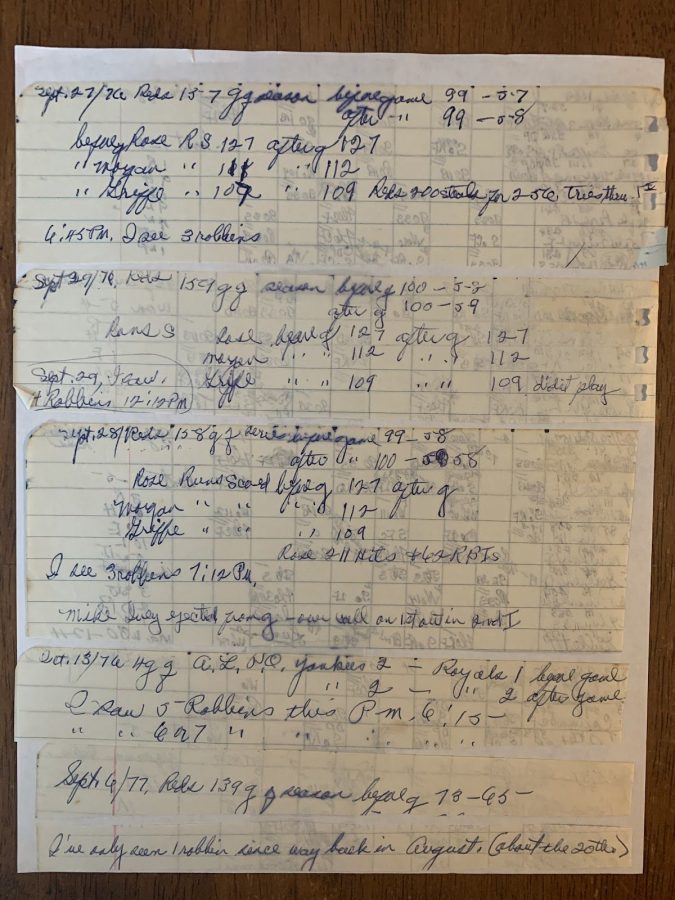 Sept. 27/76 Reds 157 g of season before game 99 - 57
after " 99 - 58
before g Rose R S. 127 after g 127
" Morgan " 111 " " 112
" Griffe " 109 " 109 Reds 200 steals for 256, tries
6:45 PM, I see 3 robbens
Sept 29/76, Reds 159 g of season before g 100 - 58
after g 100 - 59
Runs S Rose before g 127 after g 127
Morgan " " 112 " " 112
Griffe " " 109 " " 109 didn't play
Sept. 29, I saw,
4 Robbins 12:12 PM
Sept. 28/ Reds 158 g of series before game 99 - 58
after " 100 - 58
Rose Runs scored before g 127 after g
Morgan " " " " 112
Griffe " " " " 109
Rose 211 Hits + 62 RBIs
I see 3 robbens 7:12 PM,
Mike ejected from g - over call on in 2nd I
Oct. 13/76 4 g of A.L. Yankees 2 - Royals 1 before game
" 2 - " 2 after game
I saw 5 Robbins this P.M. 6:15 -
" " 6 or 7 " " " " " "
Sept. 6/77, Reds 139 g of season before g 73 - 65 -
I've only seen 1 robbin since way back in August. (about the 20th.)